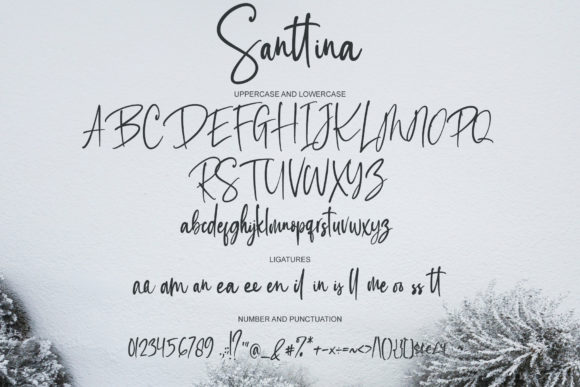 Santtina
UPPERCASE AND LOWERCASE
ABCDEFGHIJKLMNOPQ
RSTUVWXYZ
abcdefghijklmnopqrstuvwxyz
LIGATURES
aa am an ea ee en il in is ll me oo ss tt
NUMBER AND PUNCTUATION
0123456789 .,:;!?'"@_&#%*+-x÷=~<>